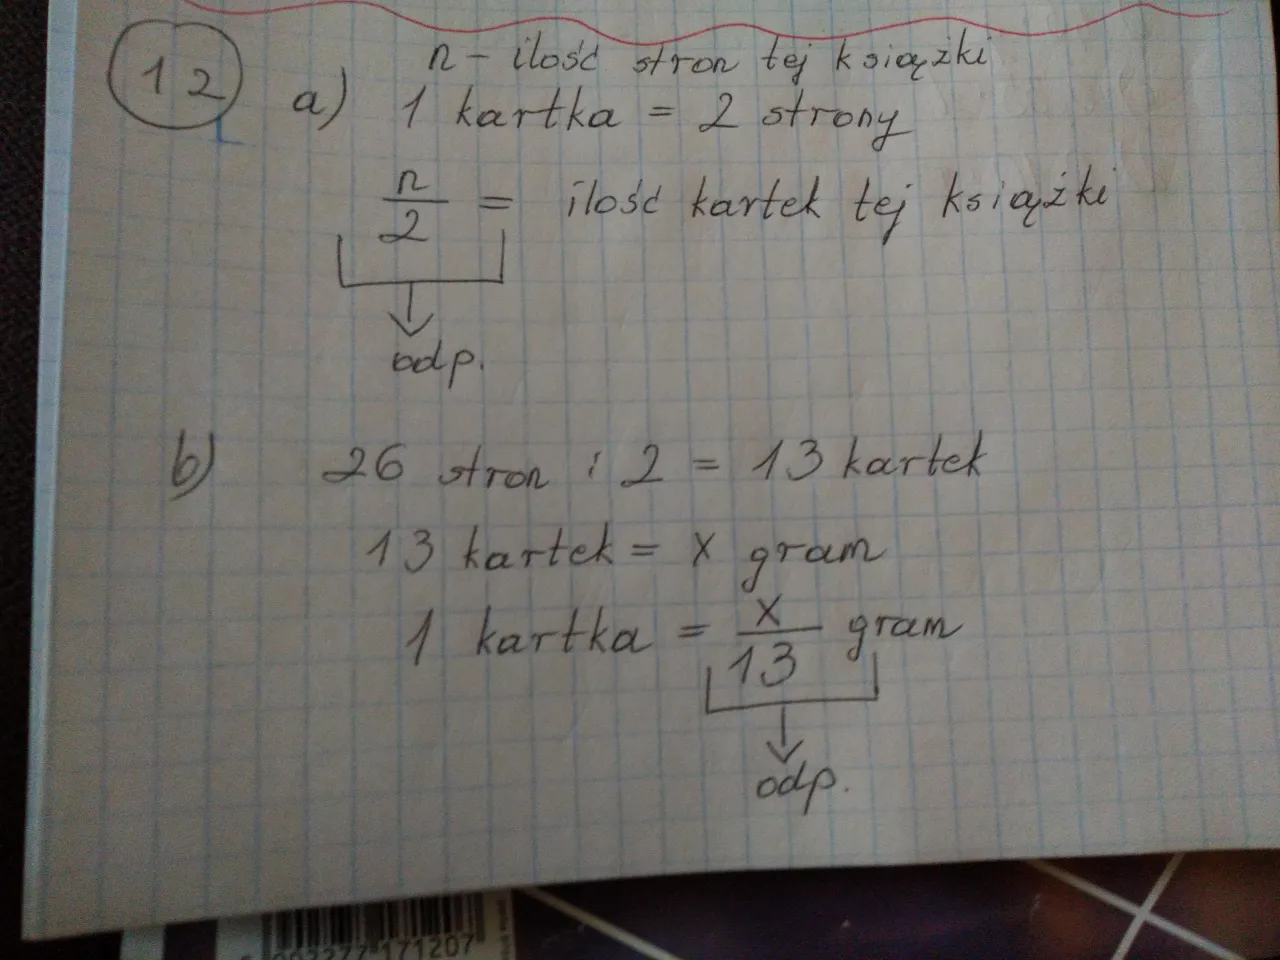 12
n - ilość stron tej książki
a) 1 kartka = 2 strony
n/2 = ilość kartek tej książki
odp.
b) 26 stron : 2 = 13 kartek
13 kartek = x gram
1 kartka = x/13 gram
odp.
171207